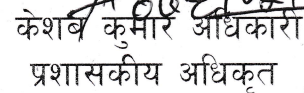 केशब कुमार अधिकारी
प्रशासकीय अधिकृत